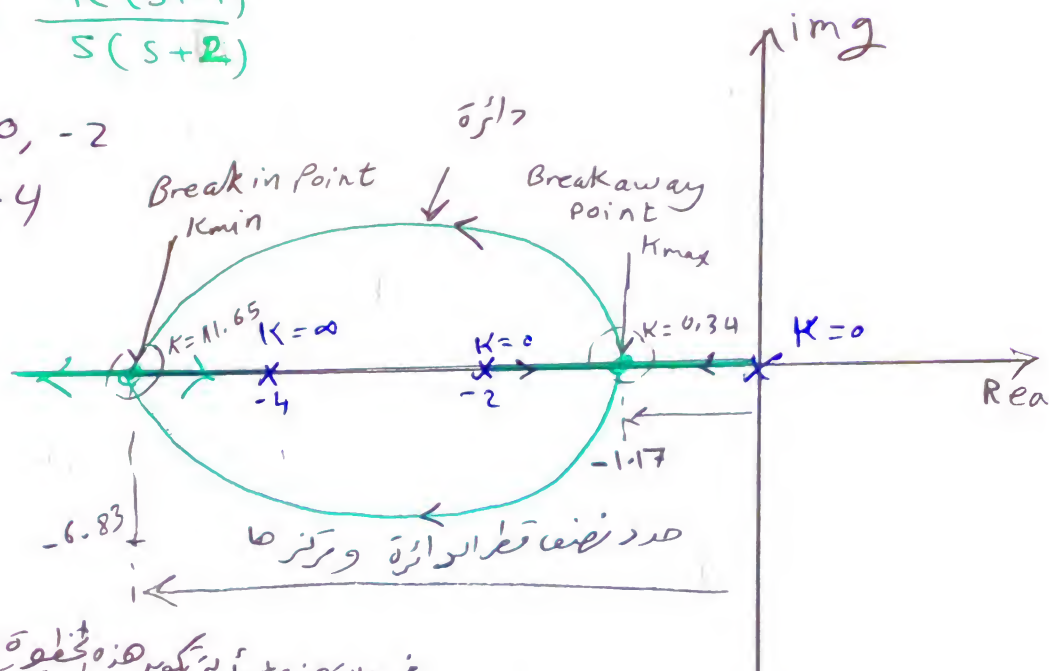 S(S+2)
img
0, -2
-4
دائرة
Break in Point
Kmin
Breakaway
Point
Kmax
K=11.65
K=∞
K=0
K=0.34
K=0
-4
-2
Rea
-1.17
-6.83
حدد نصف قطر الدائرة ومركزها
هذه الخطوة